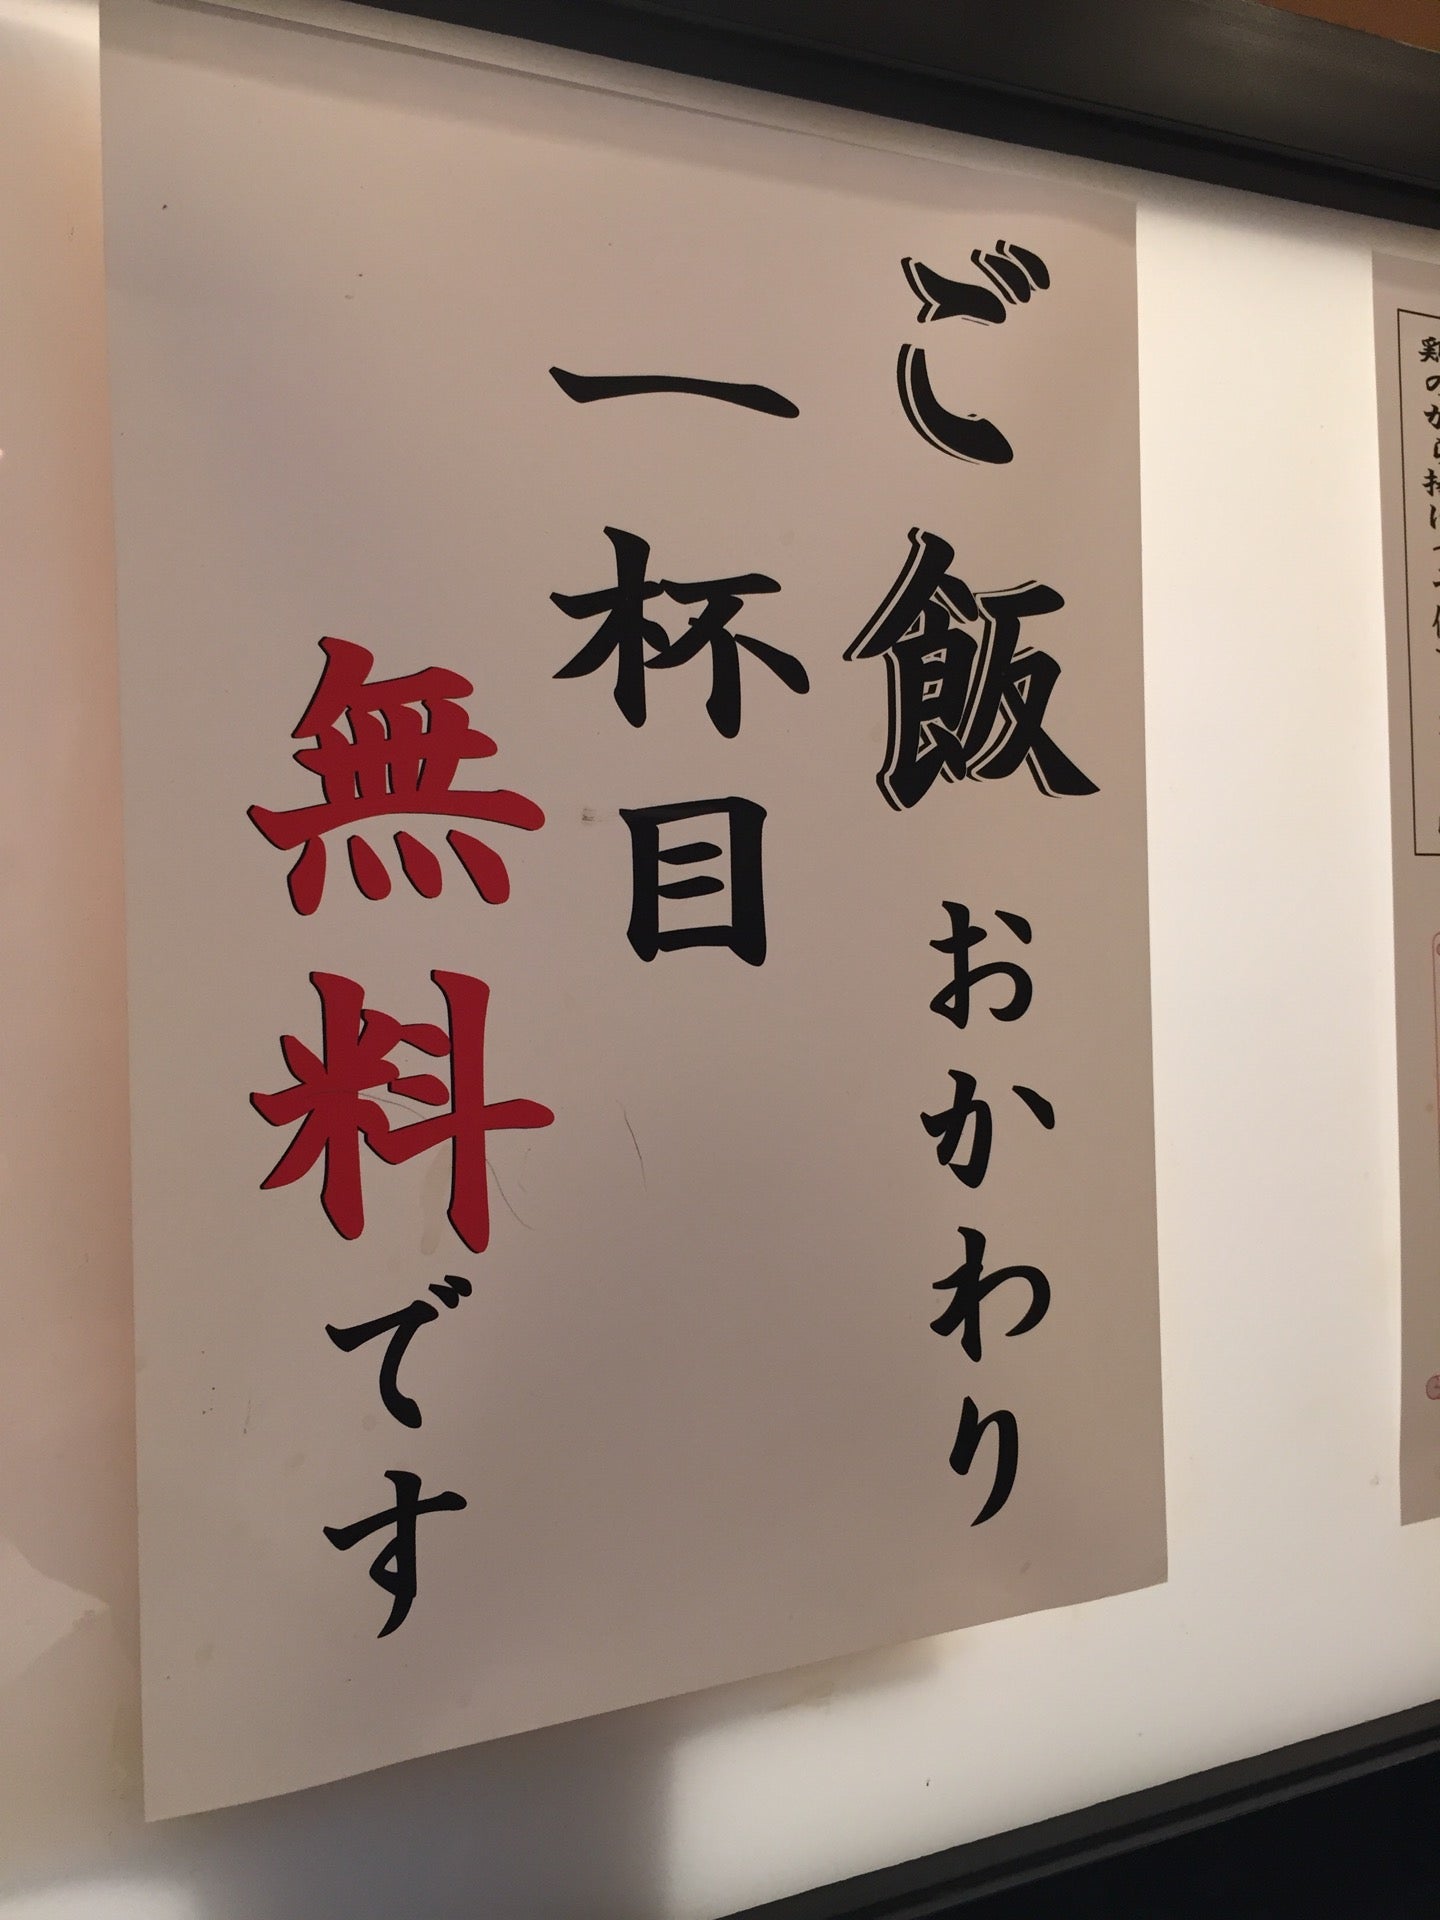 ご飯おかわり
一杯目
無料です
鶏のから揚げ